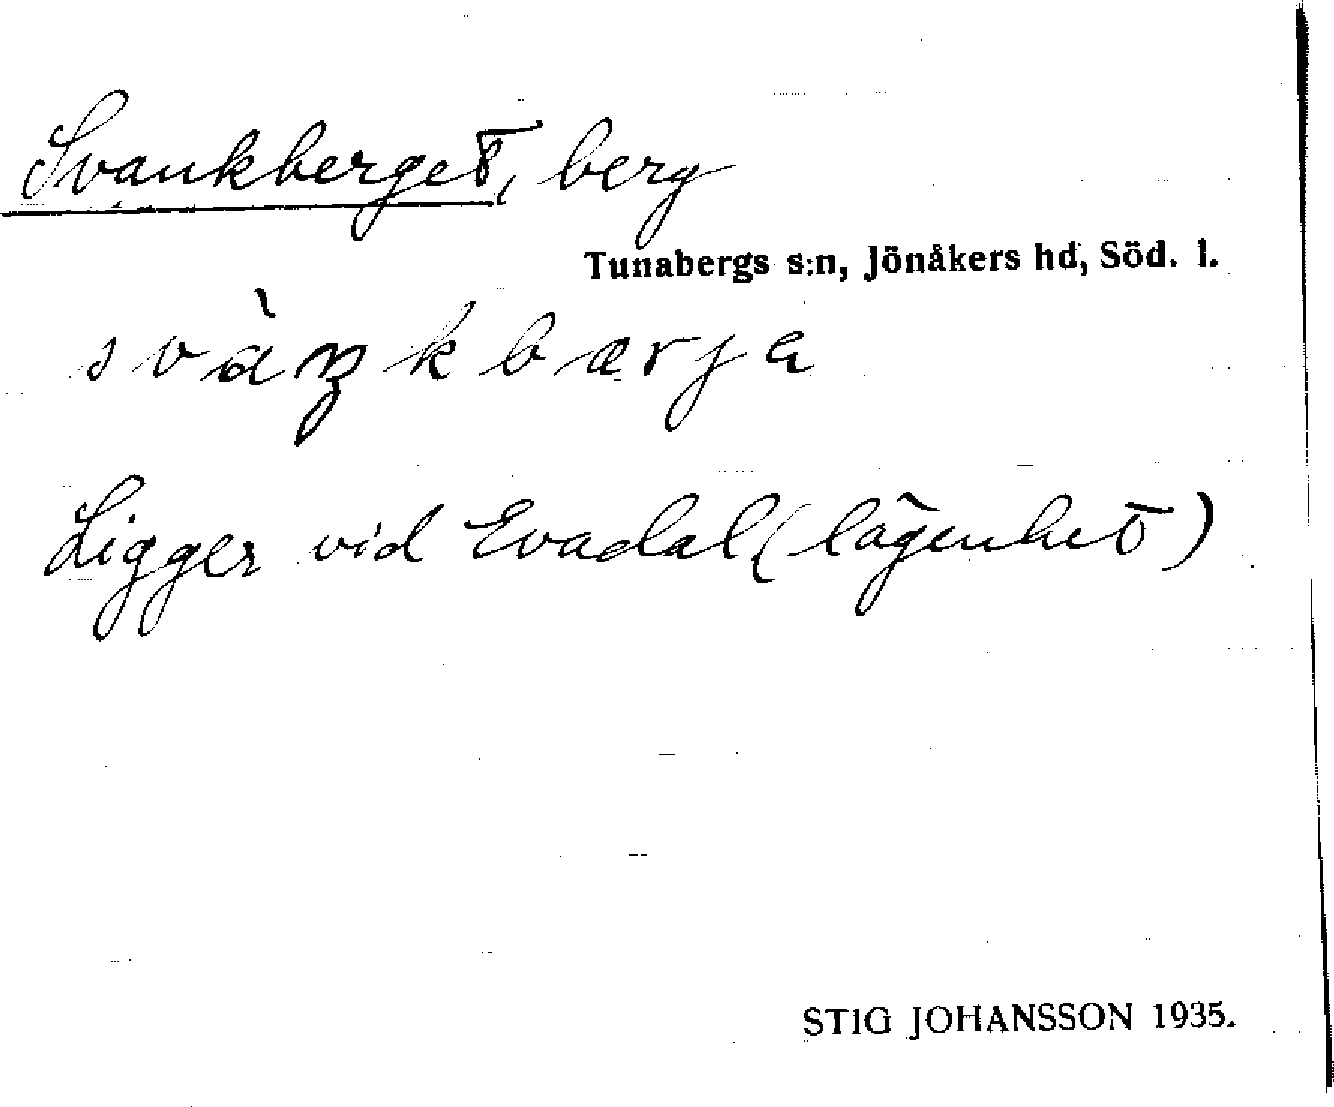 Svankberget, berg
Tunabergs s:n, Jönåkers hd, Söd. l.
svàŋkbærja
Ligger vid Evadal (lägenhet)
STIG JOHANSSON 1935.